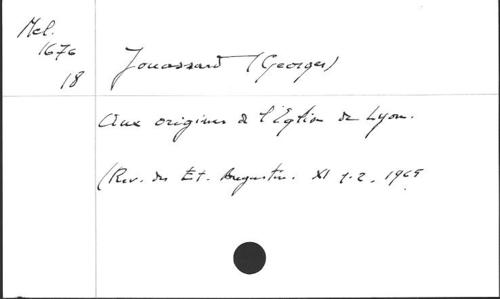 Mel.
1676
18
Jouassard (Georges)
Aux origines de l'Eglise de Lyon.
(Rev. des Et. Augustin. XI 1-2. 1965